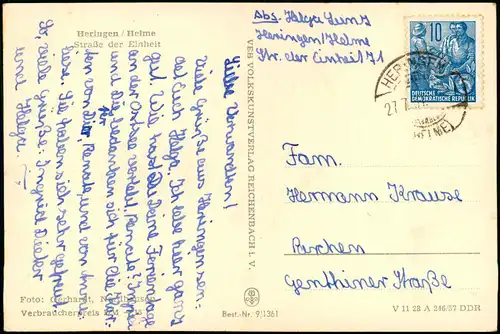 Heringen / Helme
Straße der Einheit
Liebe Verwandten!
Viele Grüße aus Heringen sen-
det Euch Helga. Ich lebe hier ganz
gut. Wie hast Du Deine Ferien
an der Ostsee verlebt, Renate?
und die bedanken sich für die
für
von Dir, Renate, und von
Sie haben sich sehr gefreut.
So, viele Grüße: Ingrid, Dieter
und Helga.
Foto: Gerhardt, Nordhausen
Verbraucherpreis DM
VEB VOLKSKUNSTVERLAG REICHENBACH I. V.
Best.-Nr. 9/1361
Abs. Helga Luntz
Heringen/Helme
Str. der Einheit 71
10
DEUTSCHE
DEMOKRATISCHE REPUBLIK
HERINGEN
27.7.
(HELME)
Fam.
Hermann Krause
Parchen
Genthiner Straße
V 11 28 A 246/57 DDR